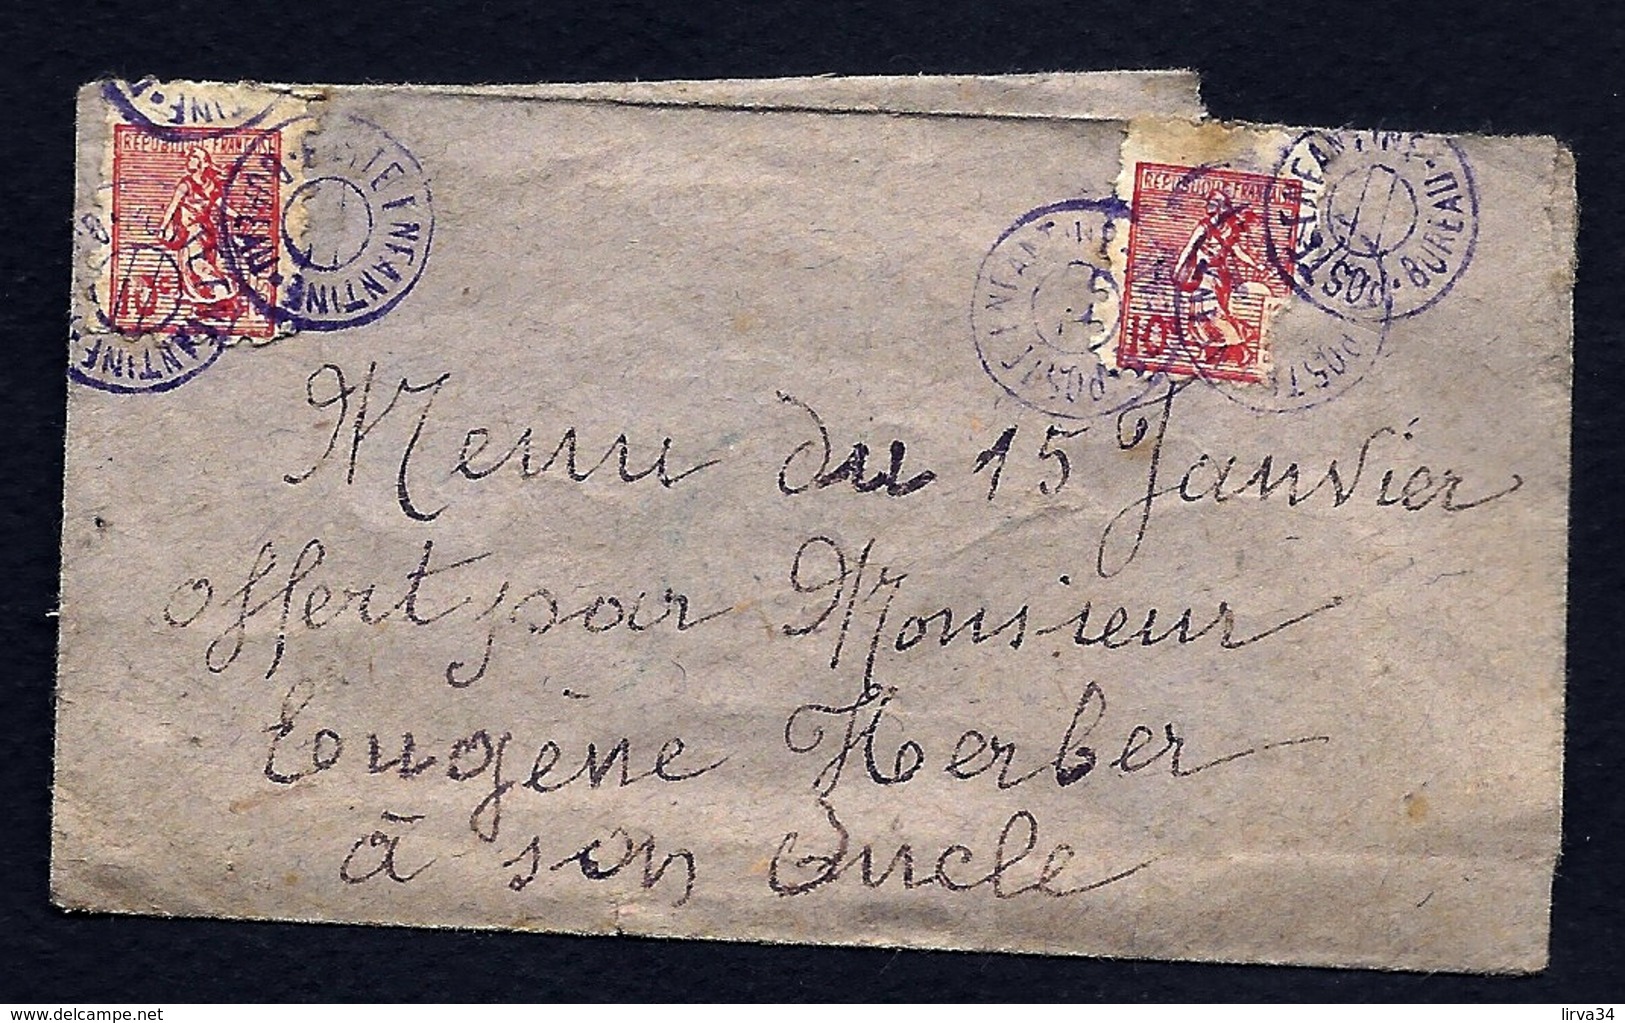 REPUBLIQUE FRANÇAISE
10c
POSTE ENFANTINE • BUREAU •
REPUBLIQUE FRANÇAISE
10
POSTE ENFANTINE
POSTE ENFANTINE • BUREAU •
Menu du 15 Janvier
offert par Monsieur
Eugène Herber
à son Oncle
delcampe.net
lirva34